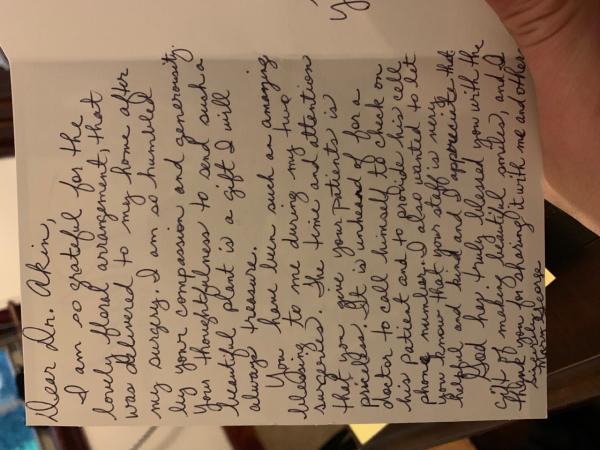 Dear Dr. Akin,
I am so grateful for the
lovely floral arrangement, that
was delivered to my home after
my surgery. I am so humbled
by your compassion and generosity.
Your thoughtfulness to send such a
beautiful plant is a gift I will
always treasure.
You have been such an amazing
blessing to me during my two
surgeries. The time and attention
that you give your patients is
priceless. It is unheard of for a
doctor to call himself to check on
his patient and to provide his cell
phone number. I also wanted to let
you know that your staff is very
helpful and kind and I appreciate that.
God has truly blessed you with the
gift of making beautiful smiles, and I
thank you for sharing it with me and others.